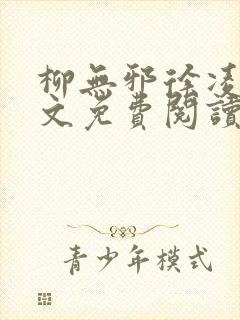 柳無邪徐凌
文免費閱讀
青少年模式